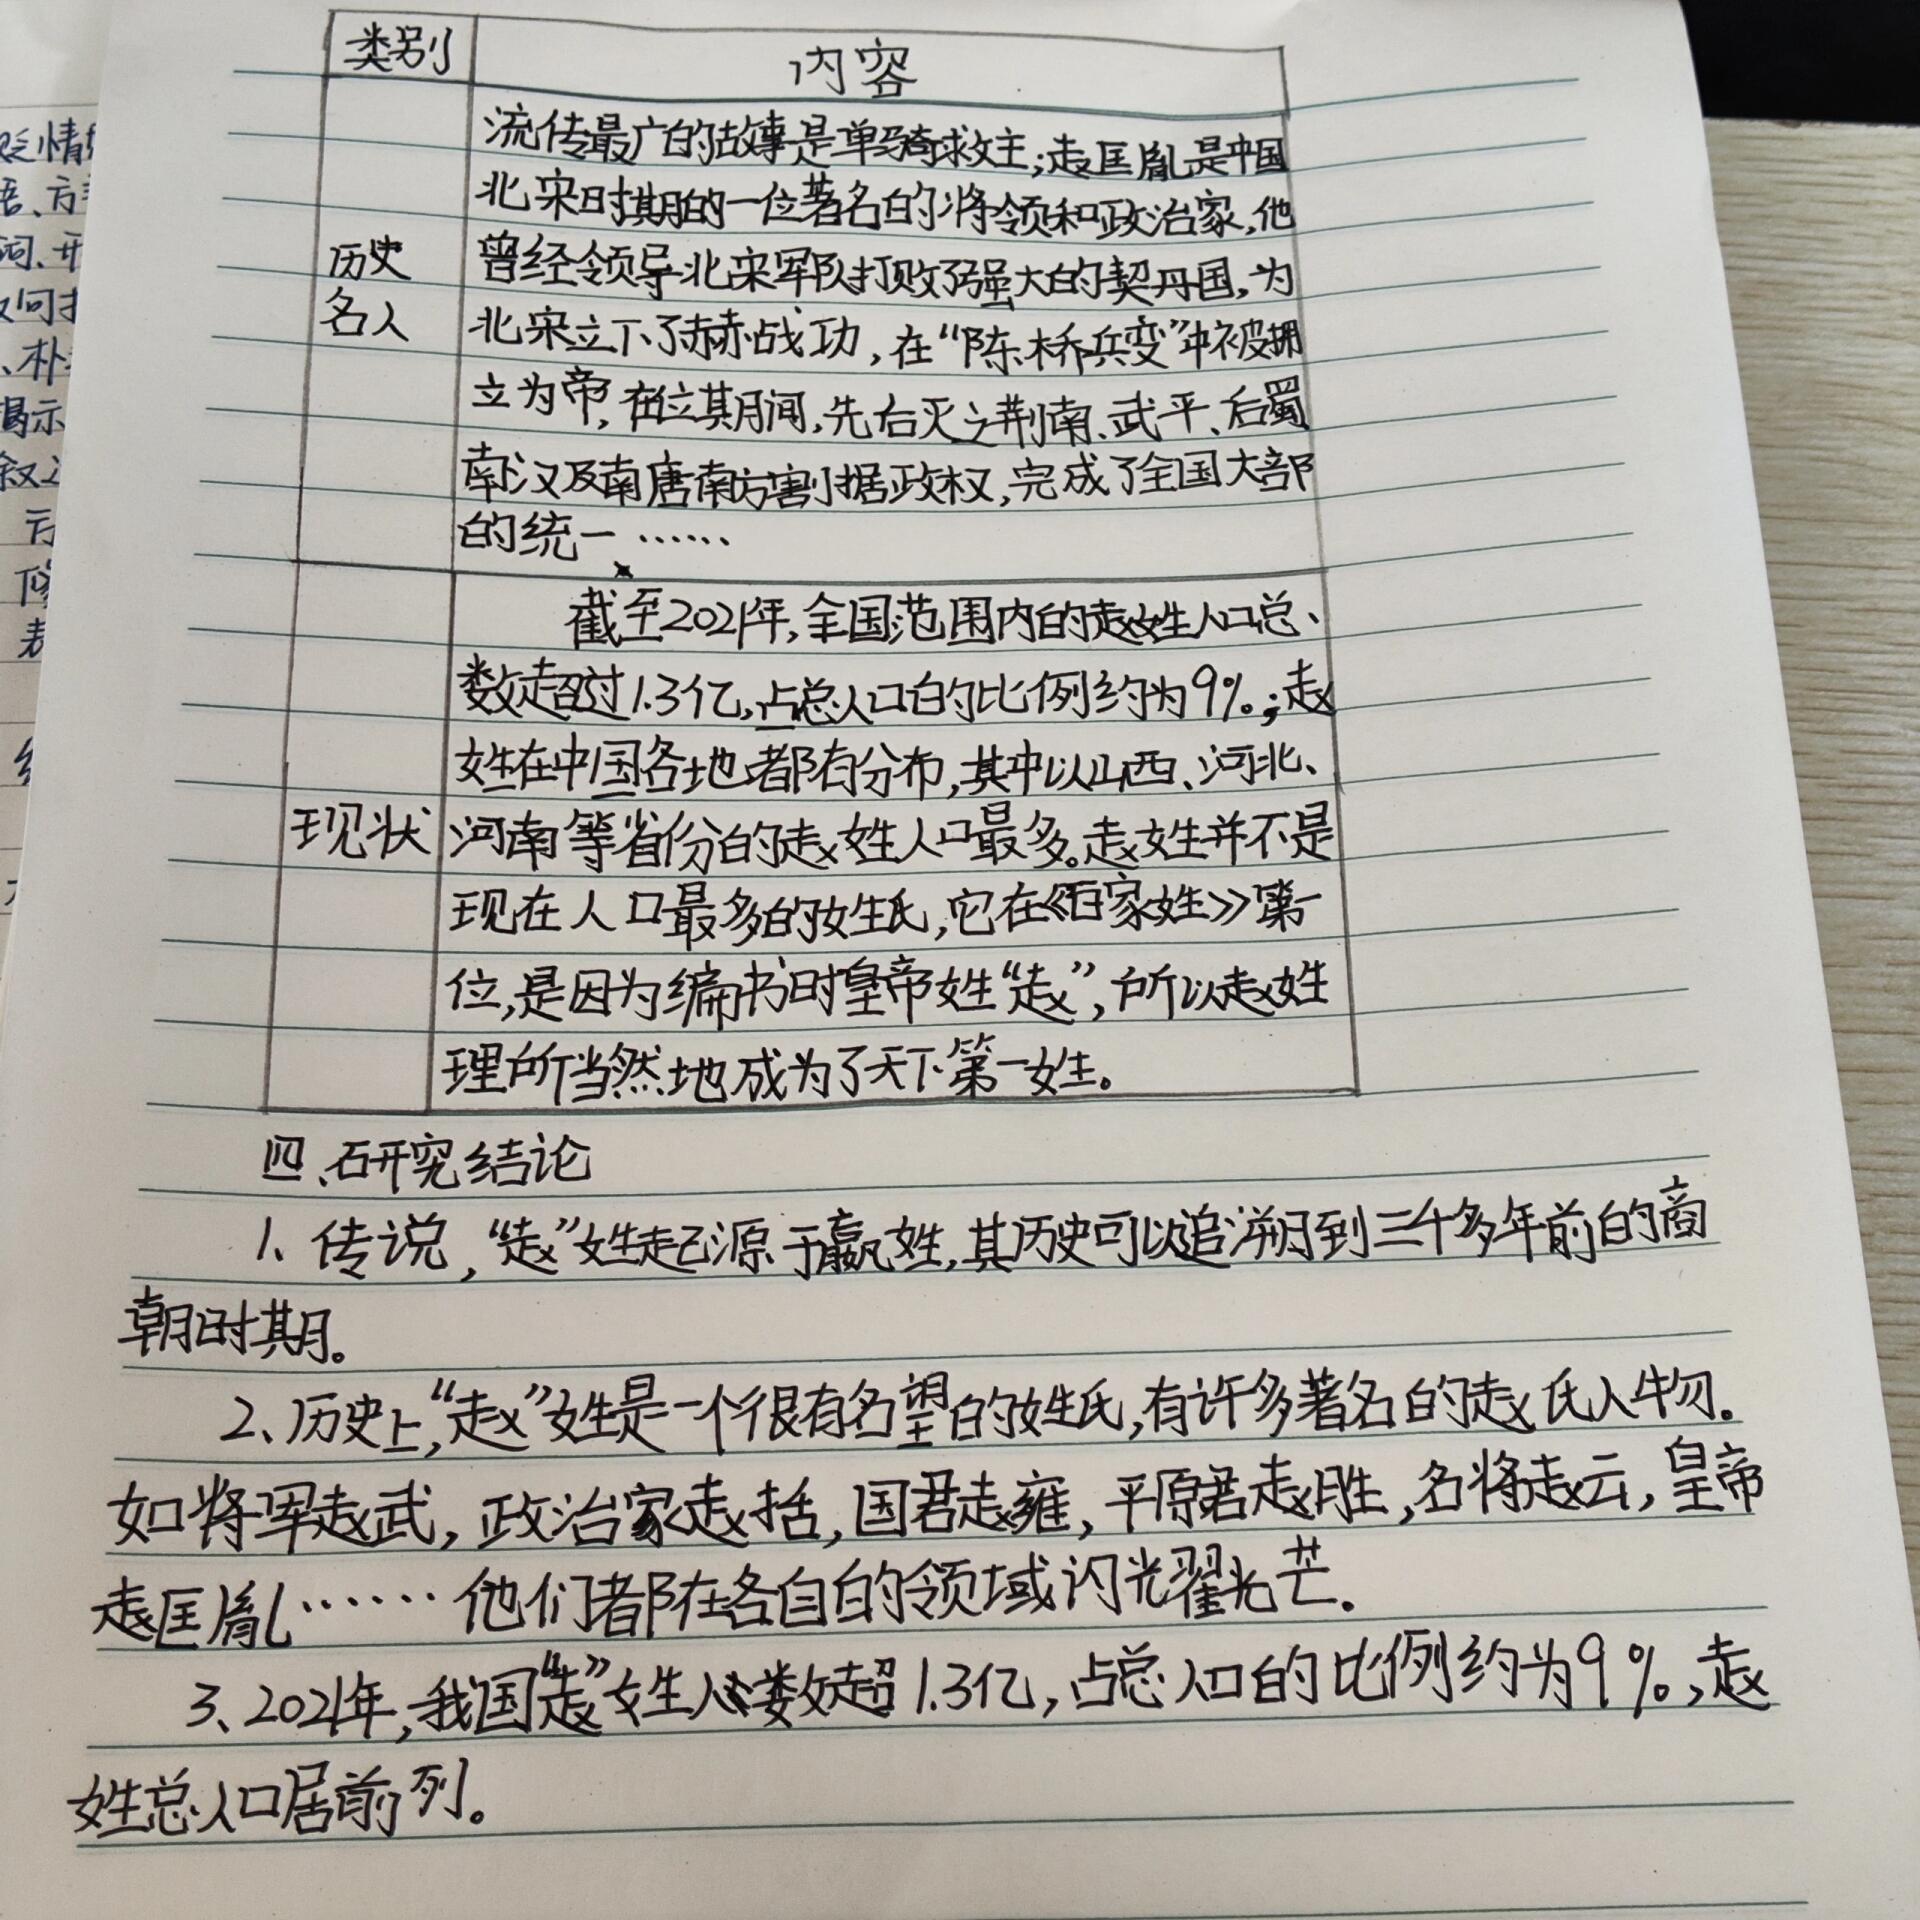 类别 内容
流传最广的故事是单骑救主;赵匡胤是中国
北宋时期的一位著名的将领和政治家,他
曾经领导北宋军队打败了强大的契丹国,为
北宋立下了赫赫战功,在“陈桥兵变”中被拥
立为帝,在位期间,先后灭之荆南、武平、后蜀
南汉及南唐南方割据政权,完成了全国大部
的统一……
历史
名人
截至2021年,全国范围内的赵姓人口总、
数超过1.3亿,占总人口的比例约为9%;赵
姓在中国各地都有分布,其中以山西、河北、
河南等省份的赵姓人口最多。赵姓并不是
现在人口最多的姓氏,它在《百家姓》第一
位,是因为编书时皇帝姓“赵”,所以赵姓
理所当然地成为了天下第一姓。
现状
四、研究结论
1、传说,“赵”姓起源于嬴姓,其历史可以追溯到三千多年前的商
朝时期。
2、历史上,“赵”姓是一个很有名望的姓氏,有许多著名的赵氏人物。
如将军赵武,政治家赵括,国君赵雍,平原君赵胜,名将赵云,皇帝
赵匡胤……他们都在各自的领域闪光耀光芒。
3、2021年,我国“赵”姓人数超1.3亿,占总人口的比例约为9%,赵
姓总人口居前列。
方
修
表